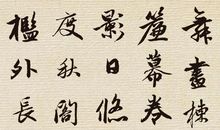 舞畫棟
簾幕卷
影日悠
度秋閣
檻外長